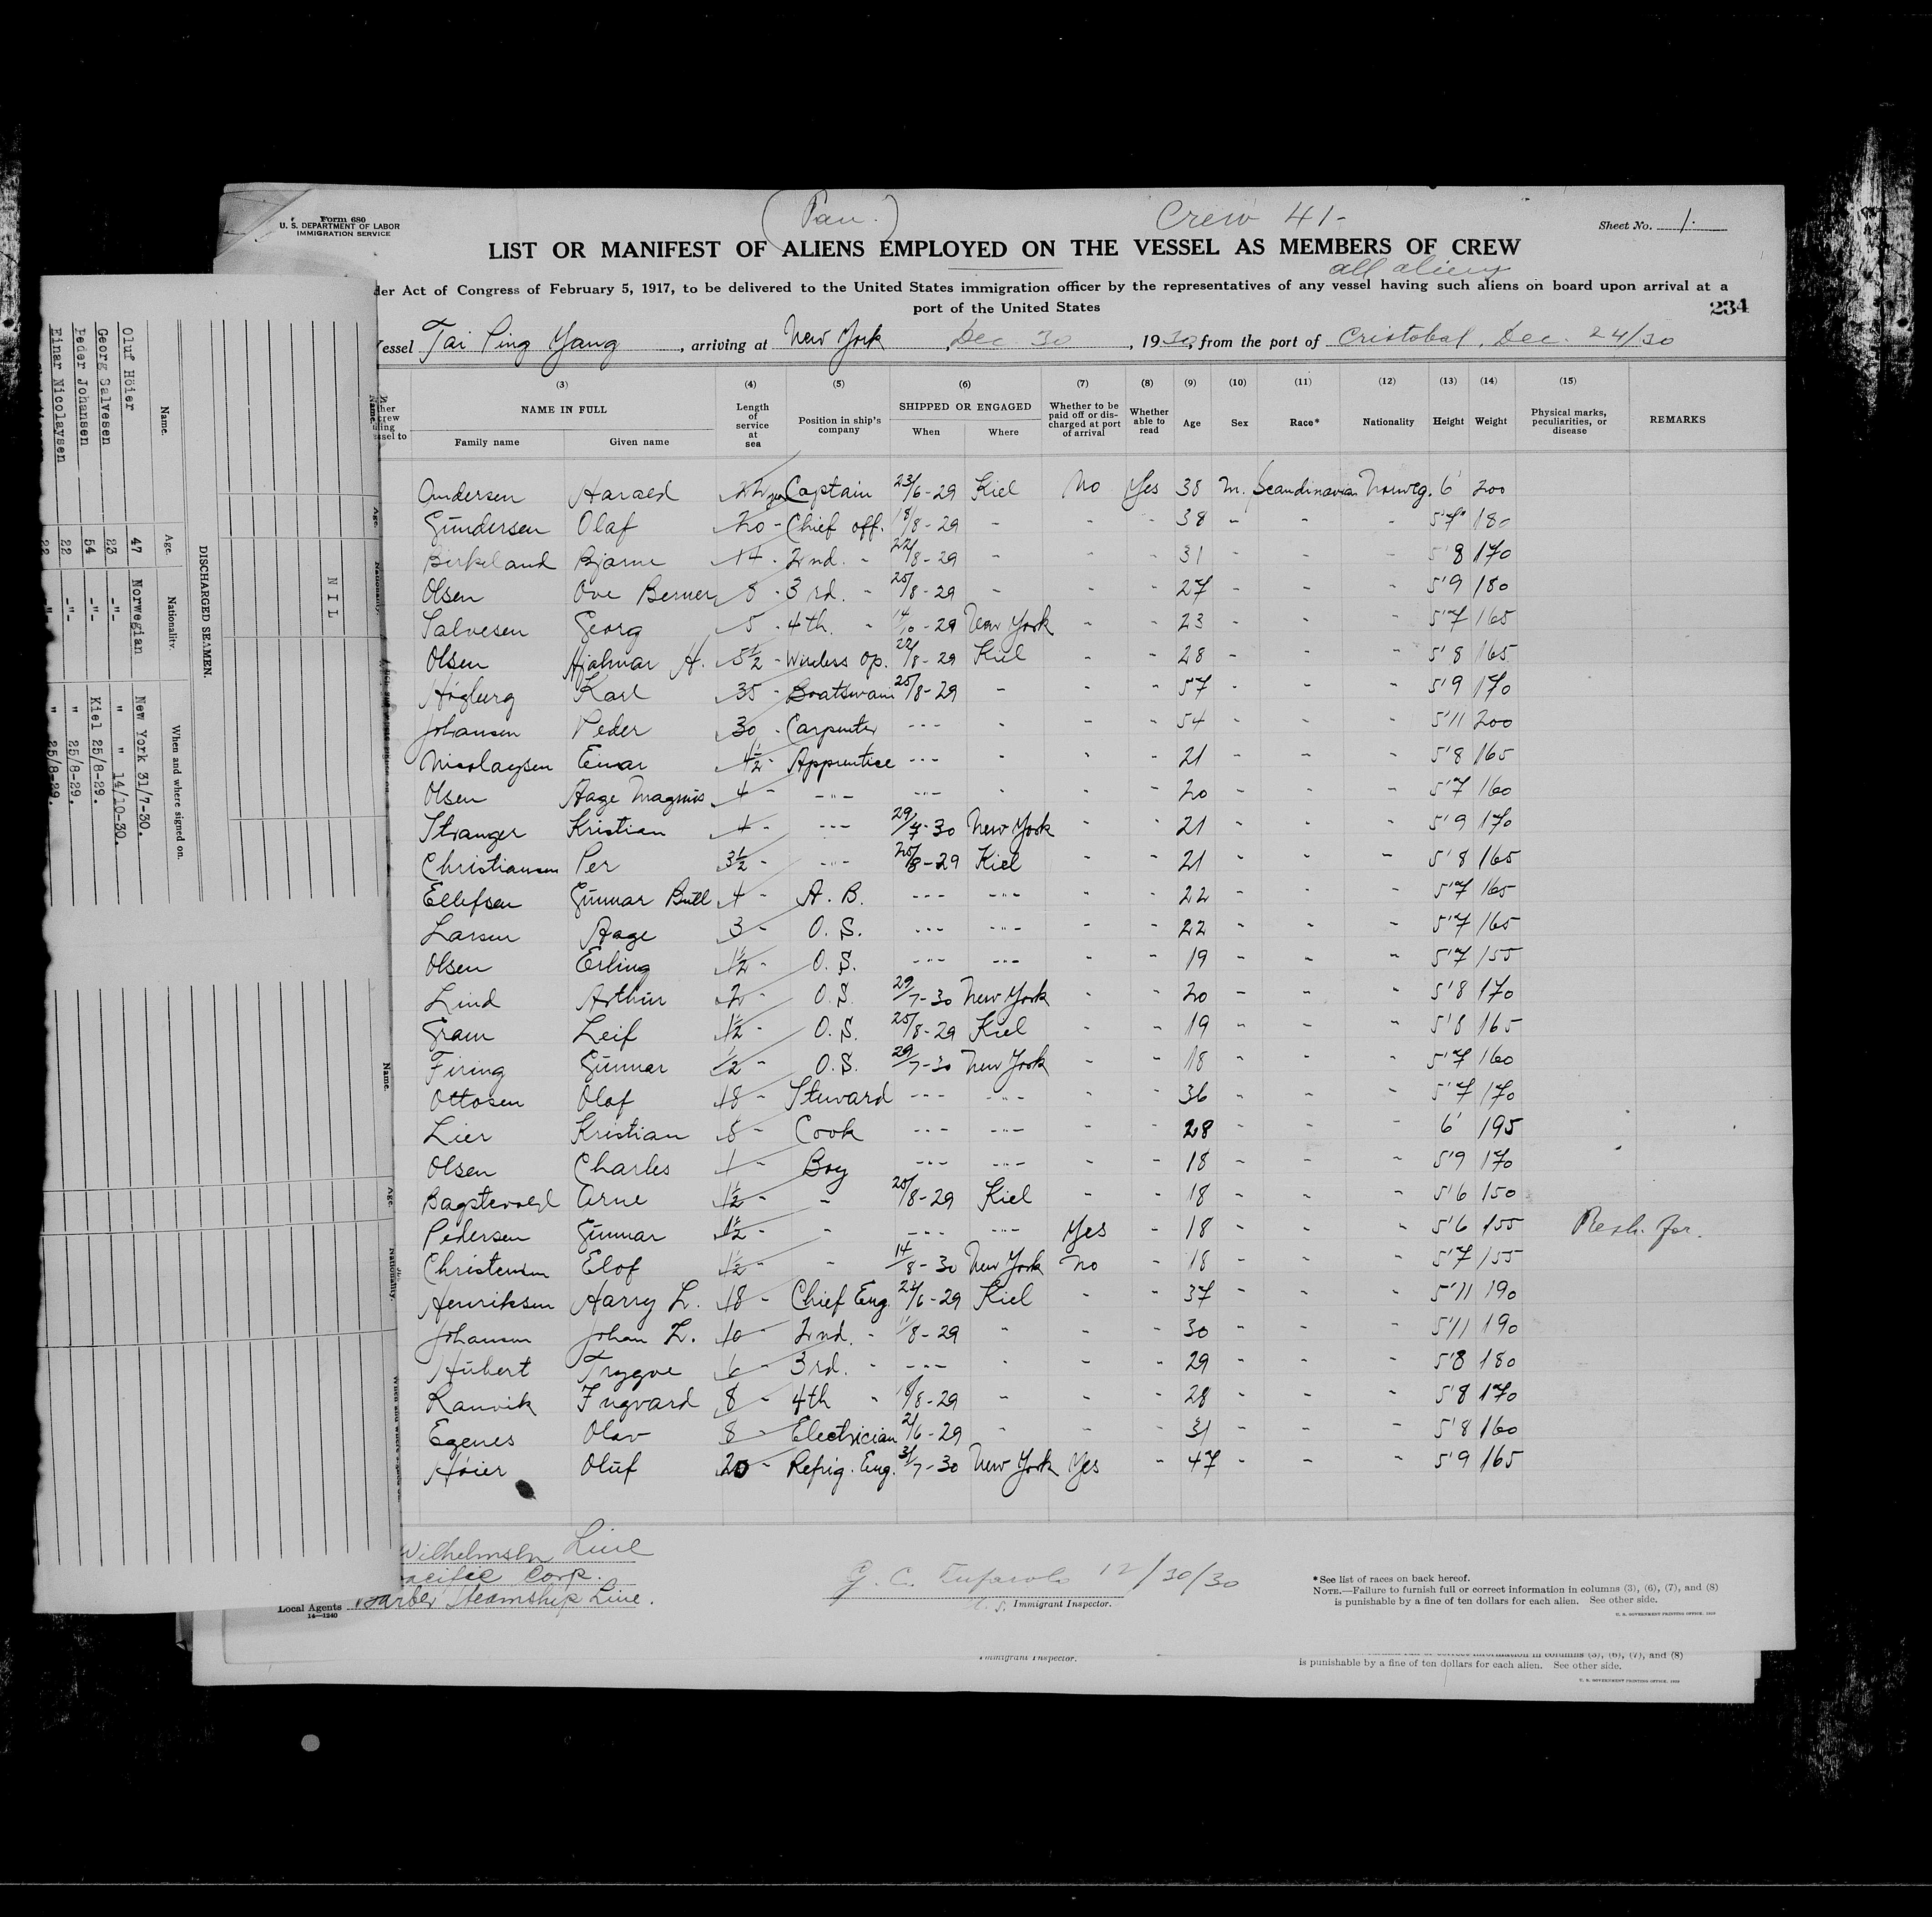 Form 680
U. S. DEPARTMENT OF LABOR
IMMIGRATION SERVICE
(Pan.)
Crew 41-
Sheet No. 1.
LIST OR MANIFEST OF ALIENS EMPLOYED ON THE VESSEL AS MEMBERS OF CREW
all aliens
der Act of Congress of February 5, 1917, to be delivered to the United States immigration officer by the representatives of any vessel having such aliens on board upon arrival at a
port of the United States
234
Vessel Tai Ping Yang, arriving at New York, Dec 30, 1930, from the port of Cristobal, Dec. 24/30
(3) (4) (5) (6) (7) (8) (9) (10) (11) (12) (13) (14) (15)
NAME IN FULL Length of service at sea Position in ship's company SHIPPED OR ENGAGED Whether to be paid off or discharged at port of arrival Whether able to read Age Sex Race* Nationality Height Weight Physical marks, peculiarities, or disease REMARKS
Family name Given name When Where
Andersen Harald yrs Captain 23/6-29 Kiel No Yes 38 m. Scandinavian Norweg. 6' 200
Gündersen Olaf 20 - Chief off. 18/8-29 - - - 38 - - - 5'7" 180
Birkeland Bjarne 14 - 2nd. - 22/8-29 - - - 31 - - - 5'8 170
Olsen Ove Berner 8 - 3rd. - 25/8-29 - - - 27 - - - 5'9 180
Salvesen Georg 5 - 4th. - 14/10-29 New York - - 23 - - - 5'7 165
Olsen Hjalmar A. 5½ - Wireless Op. 22/8-29 Kiel - - 28 - - - 5'8 165
Högberg Karl 35 - Boatswain 25/8-29 - - - 57 - - - 5'9 170
Johansen Peder 30 - Carpenter -"- - - - 54 - - - 5'11 200
Nicolaysen Einar 4½ - Apprentice -"- - - - 21 - - - 5'8 165
Olsen Aage Magnus 4 - -"- -"- - - - 20 - - - 5'7 160
Stranger Kristian 4 - -"- 29/7-30 New York - - 21 - - - 5'9 170
Christiansen Per 3½ - -"- 25/8-29 Kiel - - 21 - - - 5'8 165
Ellefsen Günnar Bull 4 - A. B. -"- -"- - - 22 - - - 5'7 165
Larsen Aage 3 - O. S. -"- -"- - - 22 - - - 5'7 165
Olsen Erling 1½ - O. S. -"- -"- - - 19 - - - 5'7 155
Lind Arthür 2 - O. S. 29/7-30 New York - - 20 - - - 5'8 170
Gram Leif 1½ - O. S. 25/8-29 Kiel - - 19 - - - 5'8 165
Firing Günnar ½ - O. S. 29/7-30 New York - - 18 - - - 5'7 160
Ottosen Olaf 18 - Steward -"- -"- - - 36 - - - 5'7 170
Lier Kristian 8 - Cook -"- -"- - - 28 - - - 6' 195
Olsen Charles 1 - Boy -"- -"- - - 18 - - - 5'9 170
Arne 1½ - - 25/8-29 Kiel - - 18 - - - 5'6 150
Pedersen Günnar 1½ - - -"- -"- Yes - 18 - - - 5'6 155
Elof 1½ - - 14/8-30 New York No - 18 - - - 5'7 155
Henriksen Harry L. 18 - Chief Eng. 6-29 Kiel - - 37 - - - 5'11 190
Johansen Johan L. 10 - 2nd. - 8-29 - - - 30 - - - 5'11 190
Hübert Trygve 6 - 3rd. - -"- - - - 29 - - - 5'8 180
Ranvik Ingvard 8 - 4th - 8-29 - - - 28 - - - 5'8 170
Egenes Olav 8 - Electrician 6-29 - - - 31 - - - 5'8 160
Höier Olüf 20 - Refrig. Eng. 31/7-30 New York Yes - 47 - - - 5'9 165
Wilhelmsen Line
acific Corp.
Local Agents Barber Steamship Line.
14—1240
12/30/30
U. S. Immigrant Inspector.
*See list of races on back hereof.
NOTE.—Failure to furnish full or correct information in columns (3), (6), (7), and (8)
is punishable by a fine of ten dollars for each alien. See other side.
Immigrant Inspector.
is punishable by a fine of ten dollars for each alien. See other side.
DISCHARGED SEAMEN.
Name. Age. Nationality. When and where signed on.
Oluf Höier 47 Norwegian New York 31/7-30.
Georg Salvesen 23 -"- " " 14/10-30.
Peder Johansen 54 -"- Kiel 25/8-29.
Einar Nicolaysen 22 -"- " 25/8-29.
22 -"- " 25/8-29.
NIL
Name.
Age.
Nationality.